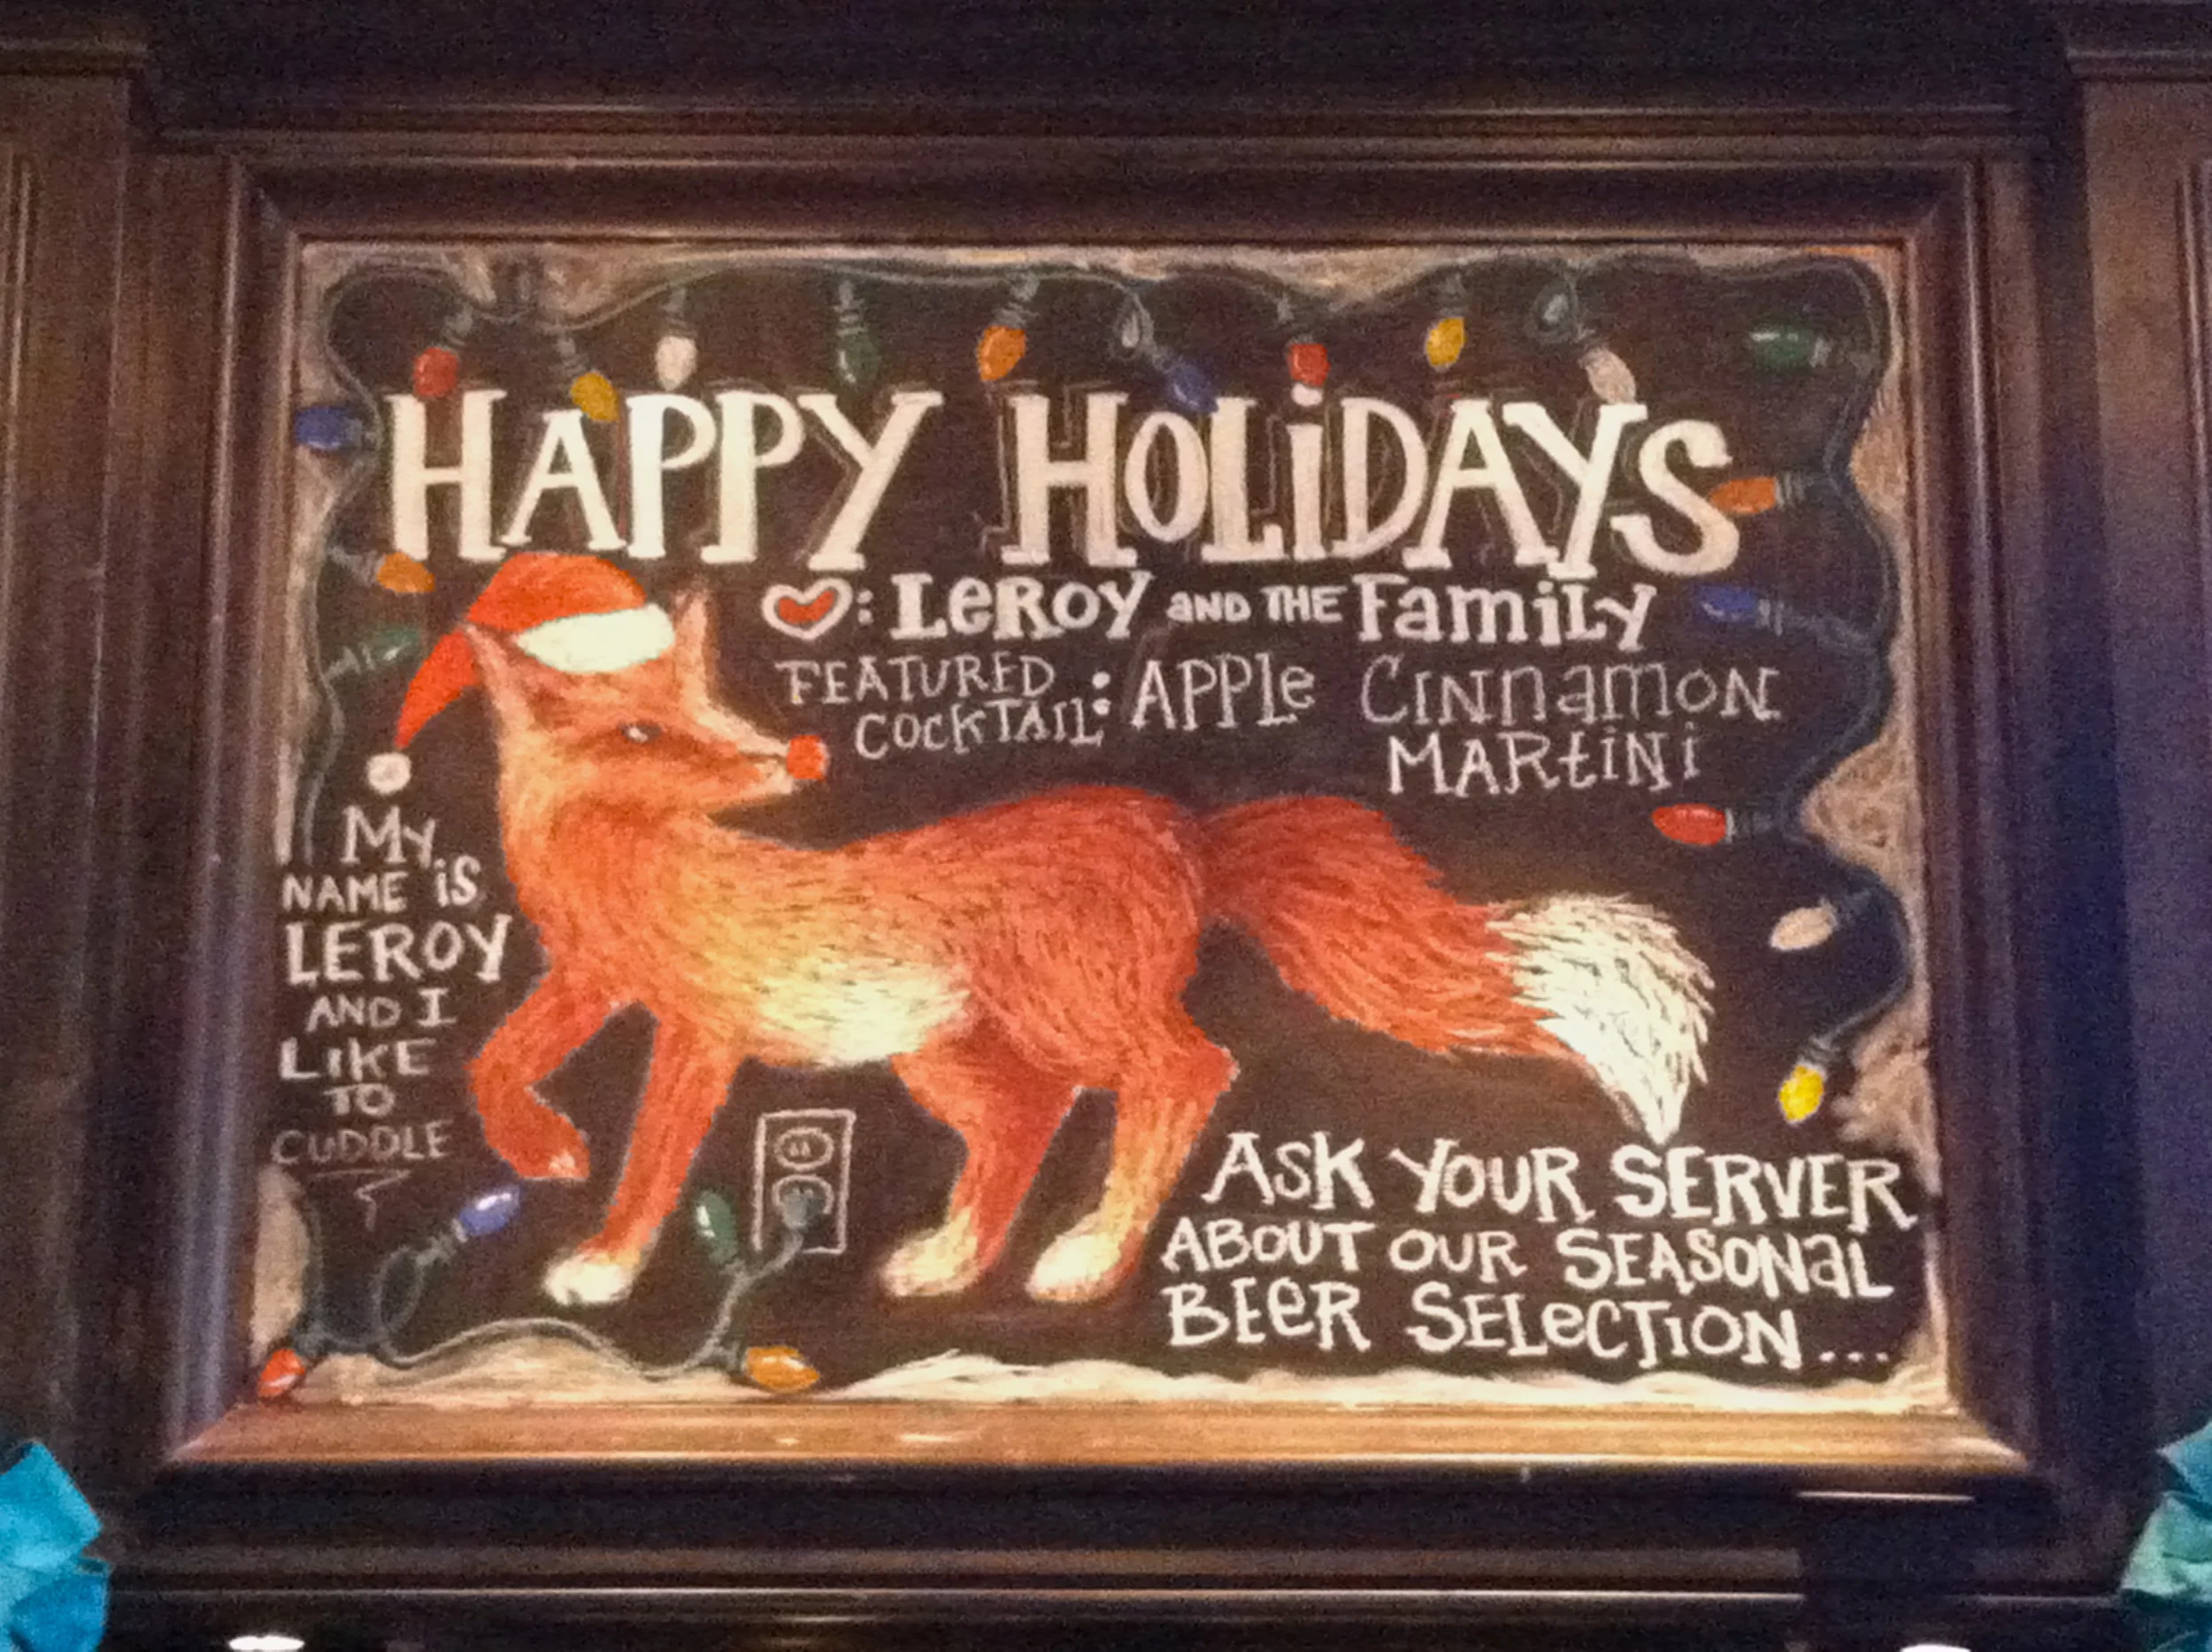 HAPPY HOLiDAYS
: LeROY aND THE FamiLy
FEATURED
COCKTAIL: APPle CINNamON
MARtiNi
My
NAME iS
LEROY
AND I
LIKE
TO
CUDDLE
ASK YOUR SERVER
ABOUT OUR SEASONaL
BEeR SELeCTION...